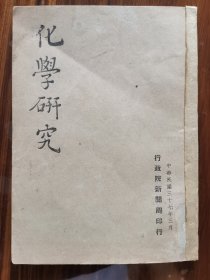 化學研究
中華民國三十七年三月
行政院新聞局印行